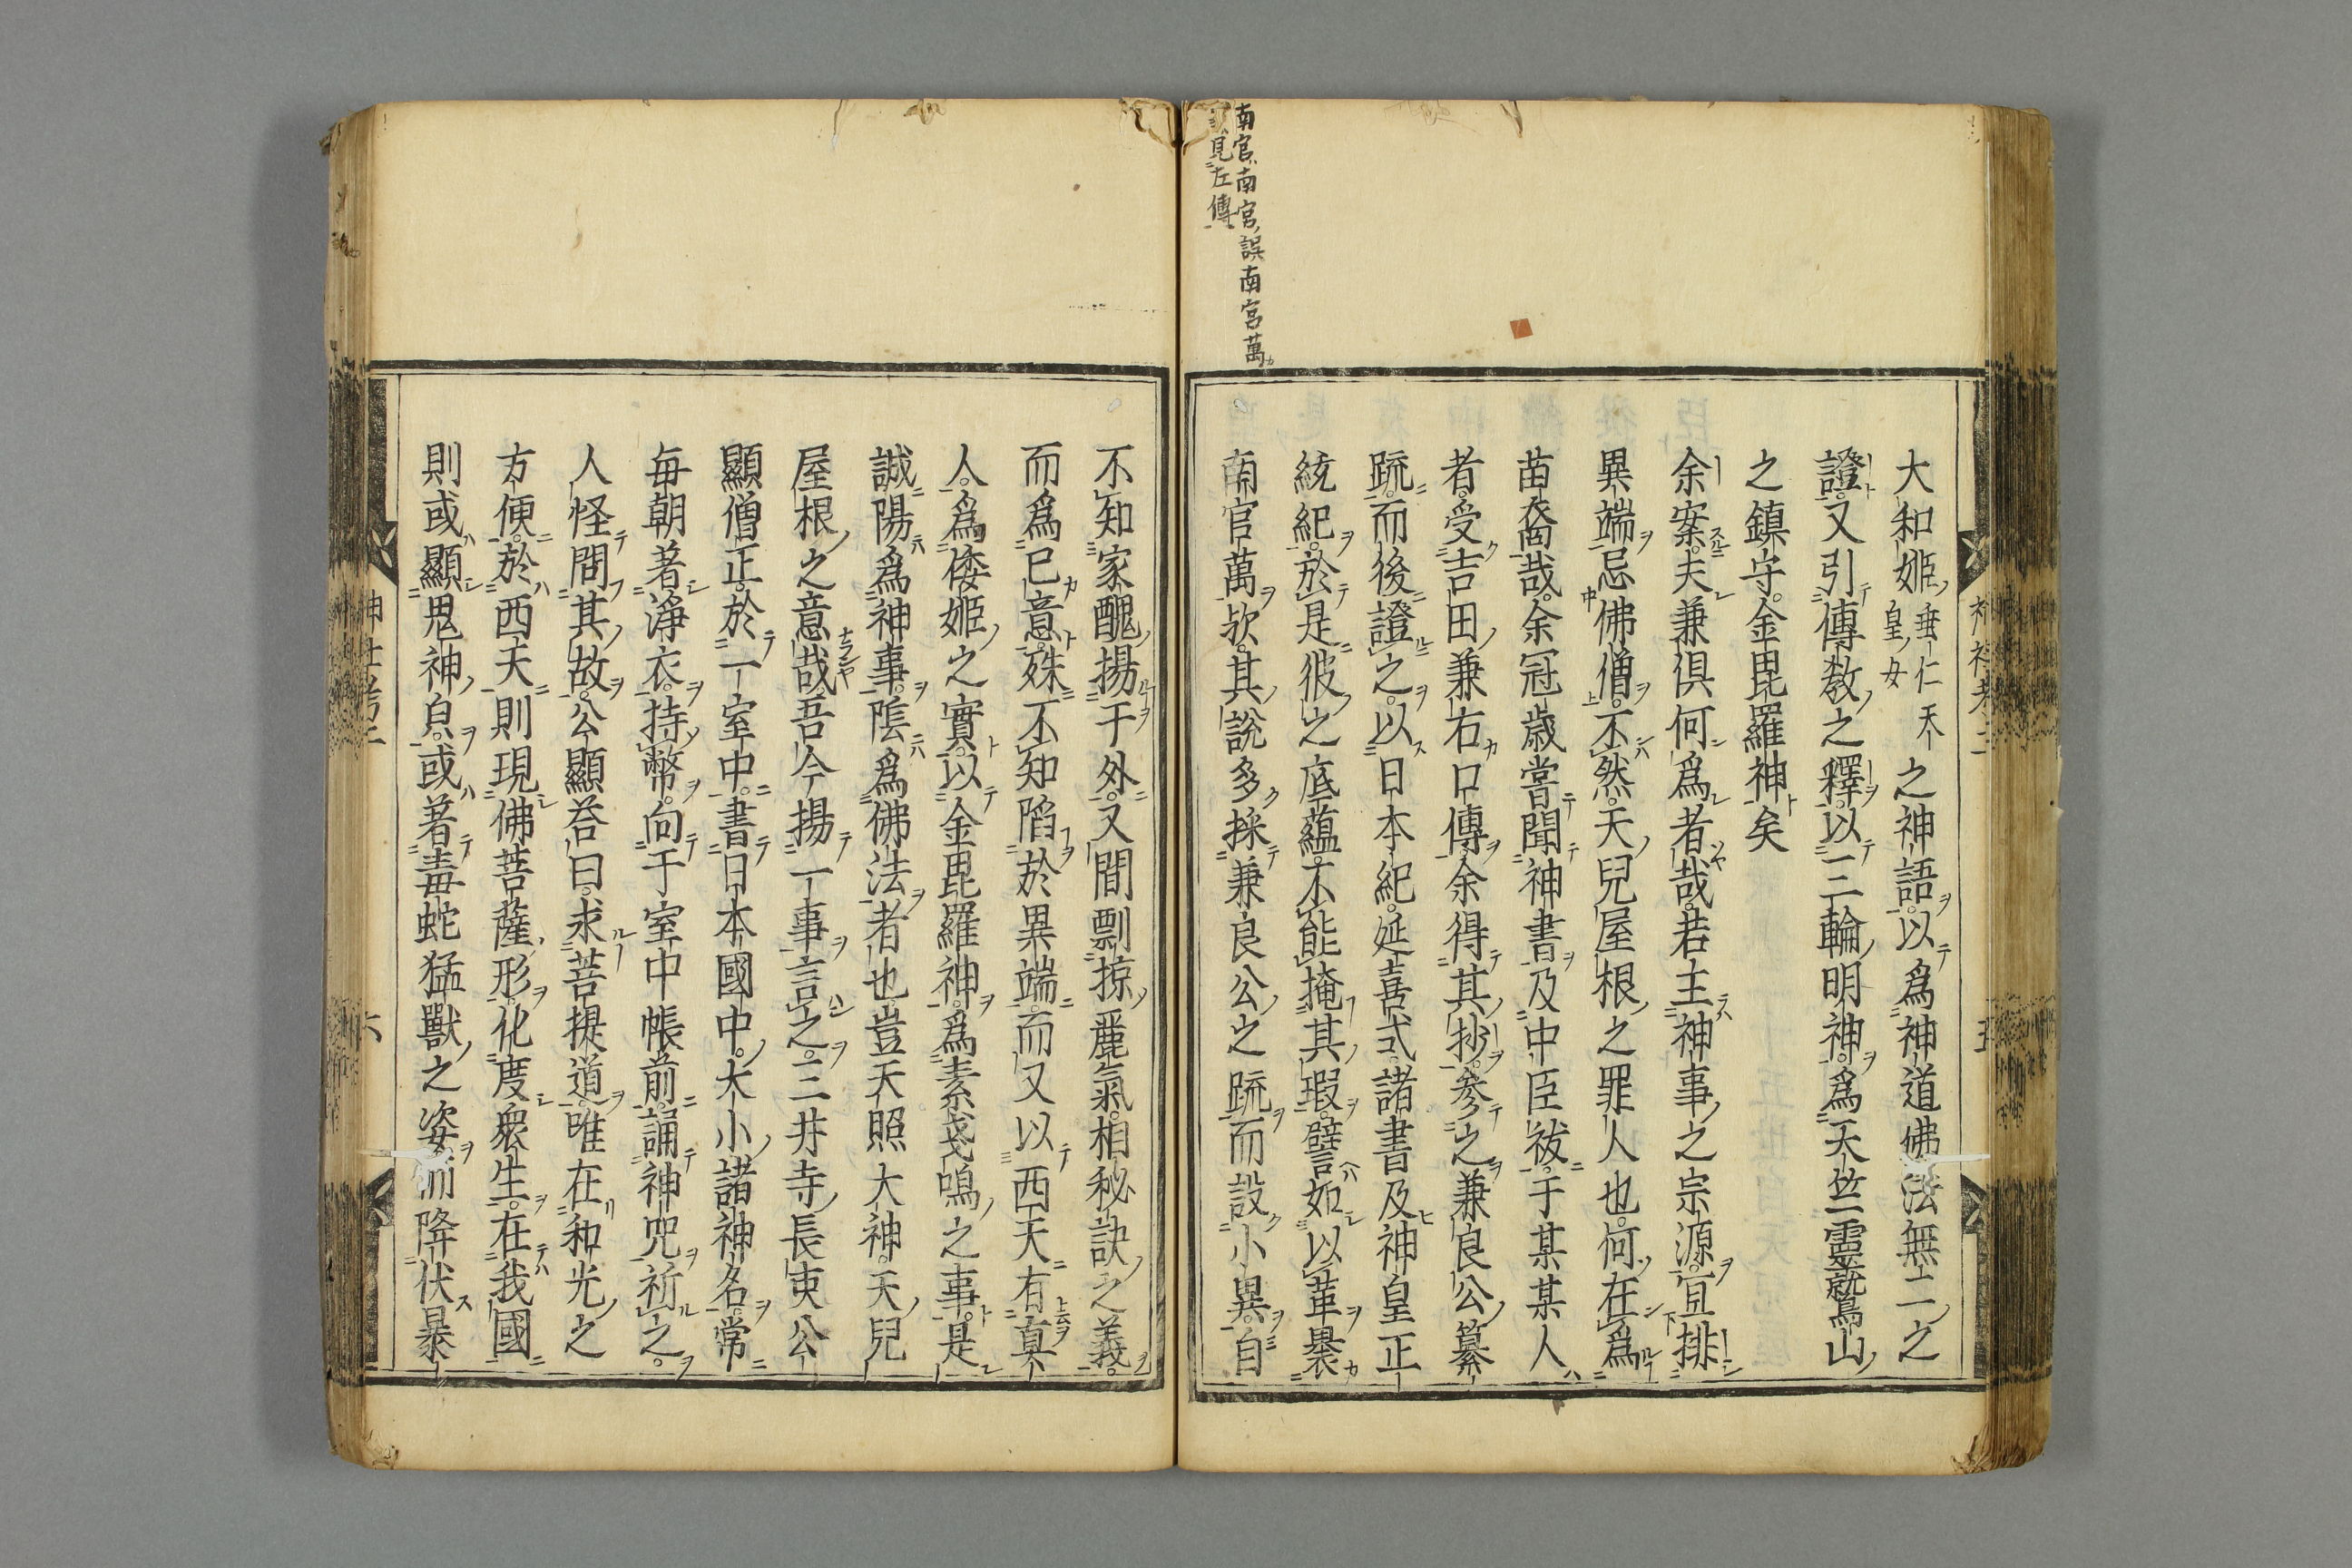 南官、南宮、誤南宮萬カ
見左傳
大和姬垂仁天皇女之神語以爲神道佛法無二之
證又引傳教之釋以三輪明神爲天竺靈鷲山
之鎮守金毘羅神矣
余案夫兼俱何爲者哉若主神事之宗源宜排
異端忌佛僧不然天兒屋根之罪人也何在爲
苗裔哉余冠歲嘗聞神書及中臣祓于某某人
者受吉田兼右口傳余得其抄參之兼良公纂
疏而後證之以日本紀延喜式諸書及神皇正
統紀於是彼之底蘊不能掩其瑕譬如以葦
南官萬歟其說多採兼良公之疏而設小異自
不知家醜揚于外又間剽掠麗氣相秘訣之義
而爲已意殊不知陷於異端而又以西天有真
人爲倭姬之實以金毘羅神爲素戔嗚之事是
誠陽爲神事陰爲佛法者也豈天照大神天兒
屋根之意哉吾今揚一事言之三井寺長吏公
顯僧正於一室中書日本國中大小諸神名常
每朝著淨衣持幣向于室中帳前誦神咒祈之
人怪問其故公顯答曰求菩提道唯在和光之
方便於西天則現佛菩薩形化度衆生在我國
則或顯鬼神皃或著毒蛇猛獸之姿而降伏暴
神社考二
六